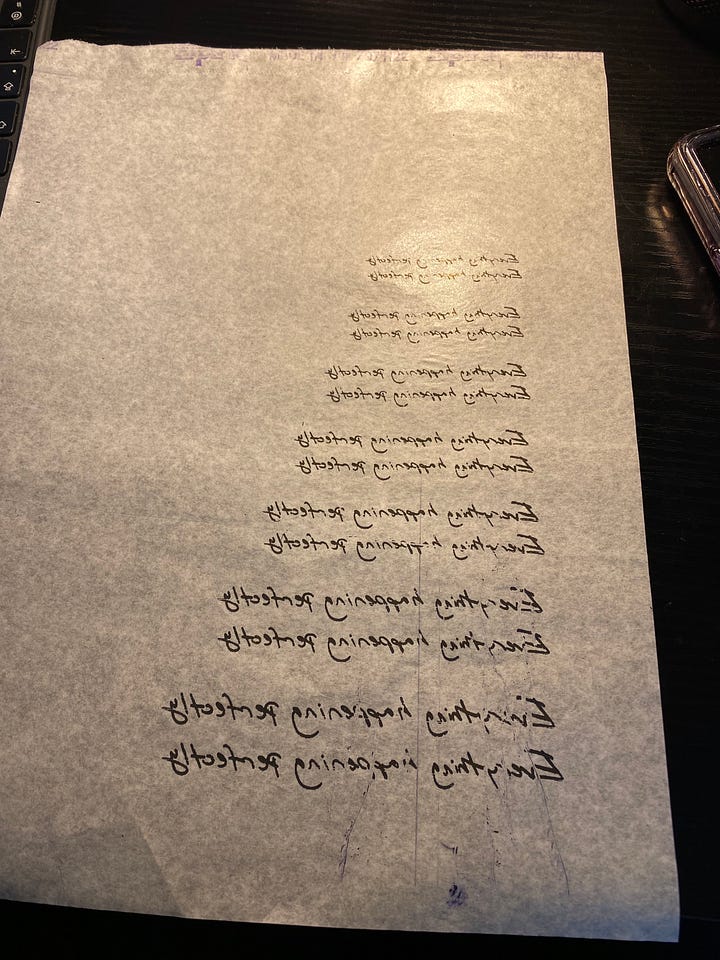 Everything happening perfectly
Everything happening perfectly
Everything happening perfectly
Everything happening perfectly
Everything happening perfectly
Everything happening perfectly
Everything happening perfectly
Everything happening perfectly
Everything happening perfectly
Everything happening perfectly
Everything happening perfectly
Everything happening perfectly
Everything happening perfectly
Everything happening perfectly